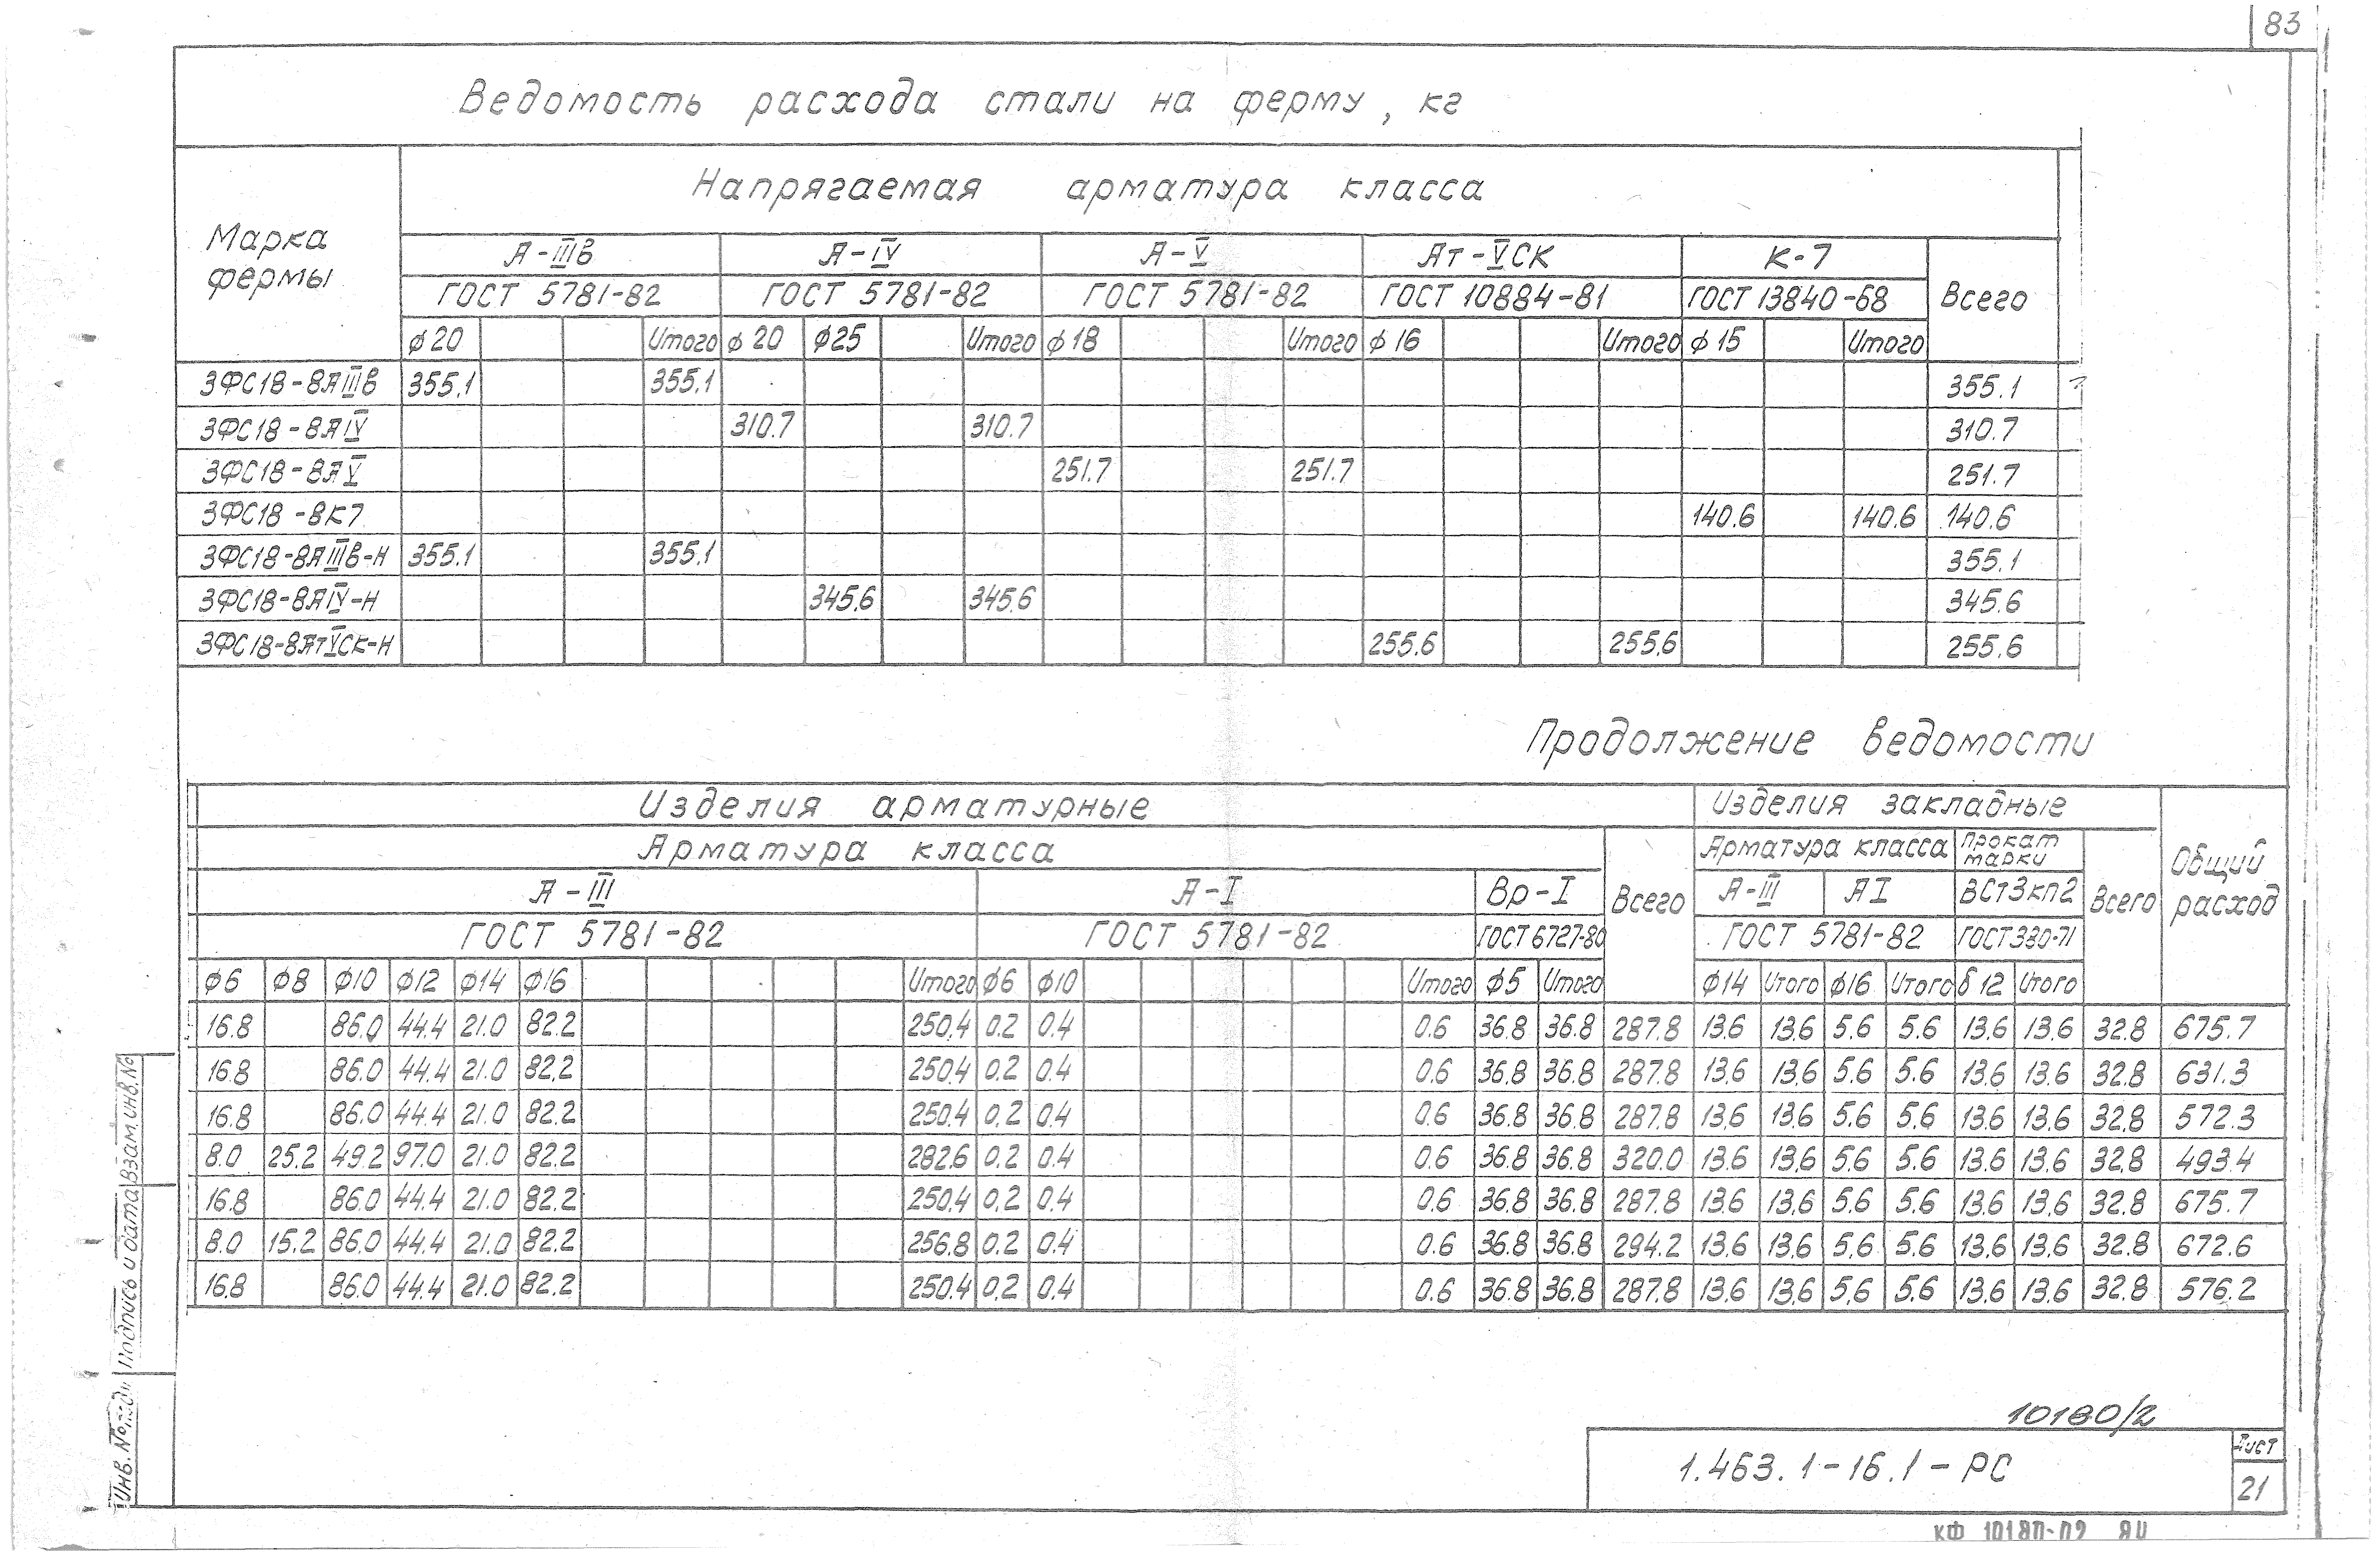 83
Ведомость расхода стали на ферму, кг
Марка фермы
Напрягаемая арматура класса
А-IIIв А-IV А-V Ат-VСК К-7 Всего
ГОСТ 5781-82 ГОСТ 5781-82 ГОСТ 5781-82 ГОСТ 10884-81 ГОСТ 13840-68
ф20 Итого ф20 ф25 Итого ф18 Итого ф16 Итого ф15 Итого
3ФС18-8АIIIв 355.1 355.1 355.1
3ФС18-8АIV 310.7 310.7 310.7
3ФС18-8АV 251.7 251.7 251.7
3ФС18-8К7 140.6 140.6 140.6
3ФС18-8АIIIв-Н 355.1 355.1 355.1
3ФС18-8АIV-Н 345.6 345.6 345.6
3ФС18-8АтVСК-Н 255.6 255.6 255.6
Продолжение ведомости
Изделия арматурные Изделия закладные Общий расход
Арматура класса Всего Арматура класса Прокат марки Всего
А-III А-I Вр-I А-III АI ВСт3кп2
ГОСТ 5781-82 ГОСТ 5781-82 ГОСТ 6727-80 ГОСТ 5781-82 ГОСТ 380-71
ф6 ф8 ф10 ф12 ф14 ф16 Итого ф6 ф10 Итого ф5 Итого ф14 Итого ф16 Итого δ12 Итого
16.8 86.0 44.4 21.0 82.2 250.4 0.2 0.4 0.6 36.8 36.8 287.8 13.6 13.6 5.6 5.6 13.6 13.6 32.8 675.7
16.8 86.0 44.4 21.0 82.2 250.4 0.2 0.4 0.6 36.8 36.8 287.8 13.6 13.6 5.6 5.6 13.6 13.6 32.8 631.3
16.8 86.0 44.4 21.0 82.2 250.4 0.2 0.4 0.6 36.8 36.8 287.8 13.6 13.6 5.6 5.6 13.6 13.6 32.8 572.3
8.0 25.2 49.2 97.0 21.0 82.2 282.6 0.2 0.4 0.6 36.8 36.8 320.0 13.6 13.6 5.6 5.6 13.6 13.6 32.8 493.4
16.8 86.0 44.4 21.0 82.2 250.4 0.2 0.4 0.6 36.8 36.8 287.8 13.6 13.6 5.6 5.6 13.6 13.6 32.8 675.7
8.0 15.2 86.0 44.4 21.0 82.2 256.8 0.2 0.4 0.6 36.8 36.8 294.2 13.6 13.6 5.6 5.6 13.6 13.6 32.8 672.6
16.8 86.0 44.4 21.0 82.2 250.4 0.2 0.4 0.6 36.8 36.8 287.8 13.6 13.6 5.6 5.6 13.6 13.6 32.8 576.2
Инв. № подл Подпись и дата Взам. инв. №
10180/2
1.463.1-16.1-РС
Лист
21